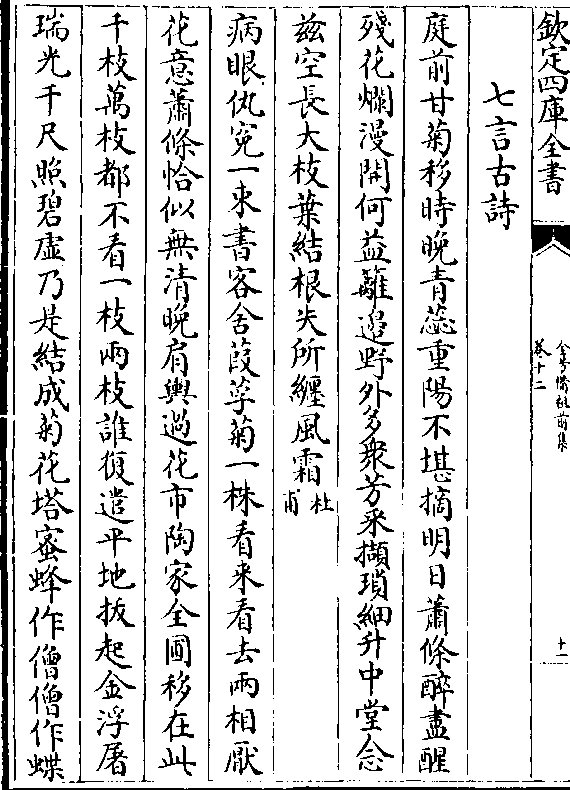 欽定四庫全書
全芳備祖前集
卷十二
十一
七言古詩
庭前甘菊移時晚青蕊重陽不堪摘明日蕭條醉盡醒
殘花爛漫開何益籬邊野外多衆芳采擷瑣細升中堂念
兹空長大枝葉結根失所纏風霜杜甫
病眼仇寃一束書客舍葭莩菊一株看来看去兩相厭
花意蕭條恰似無清晚肩輿過花市陶家全圃移在此
千枝萬枝都不看一枝兩枝誰復遣平地拔起金浮屠
瑞光千尺照碧虛乃是結成菊花塔蜜蜂作僧僧作蝶